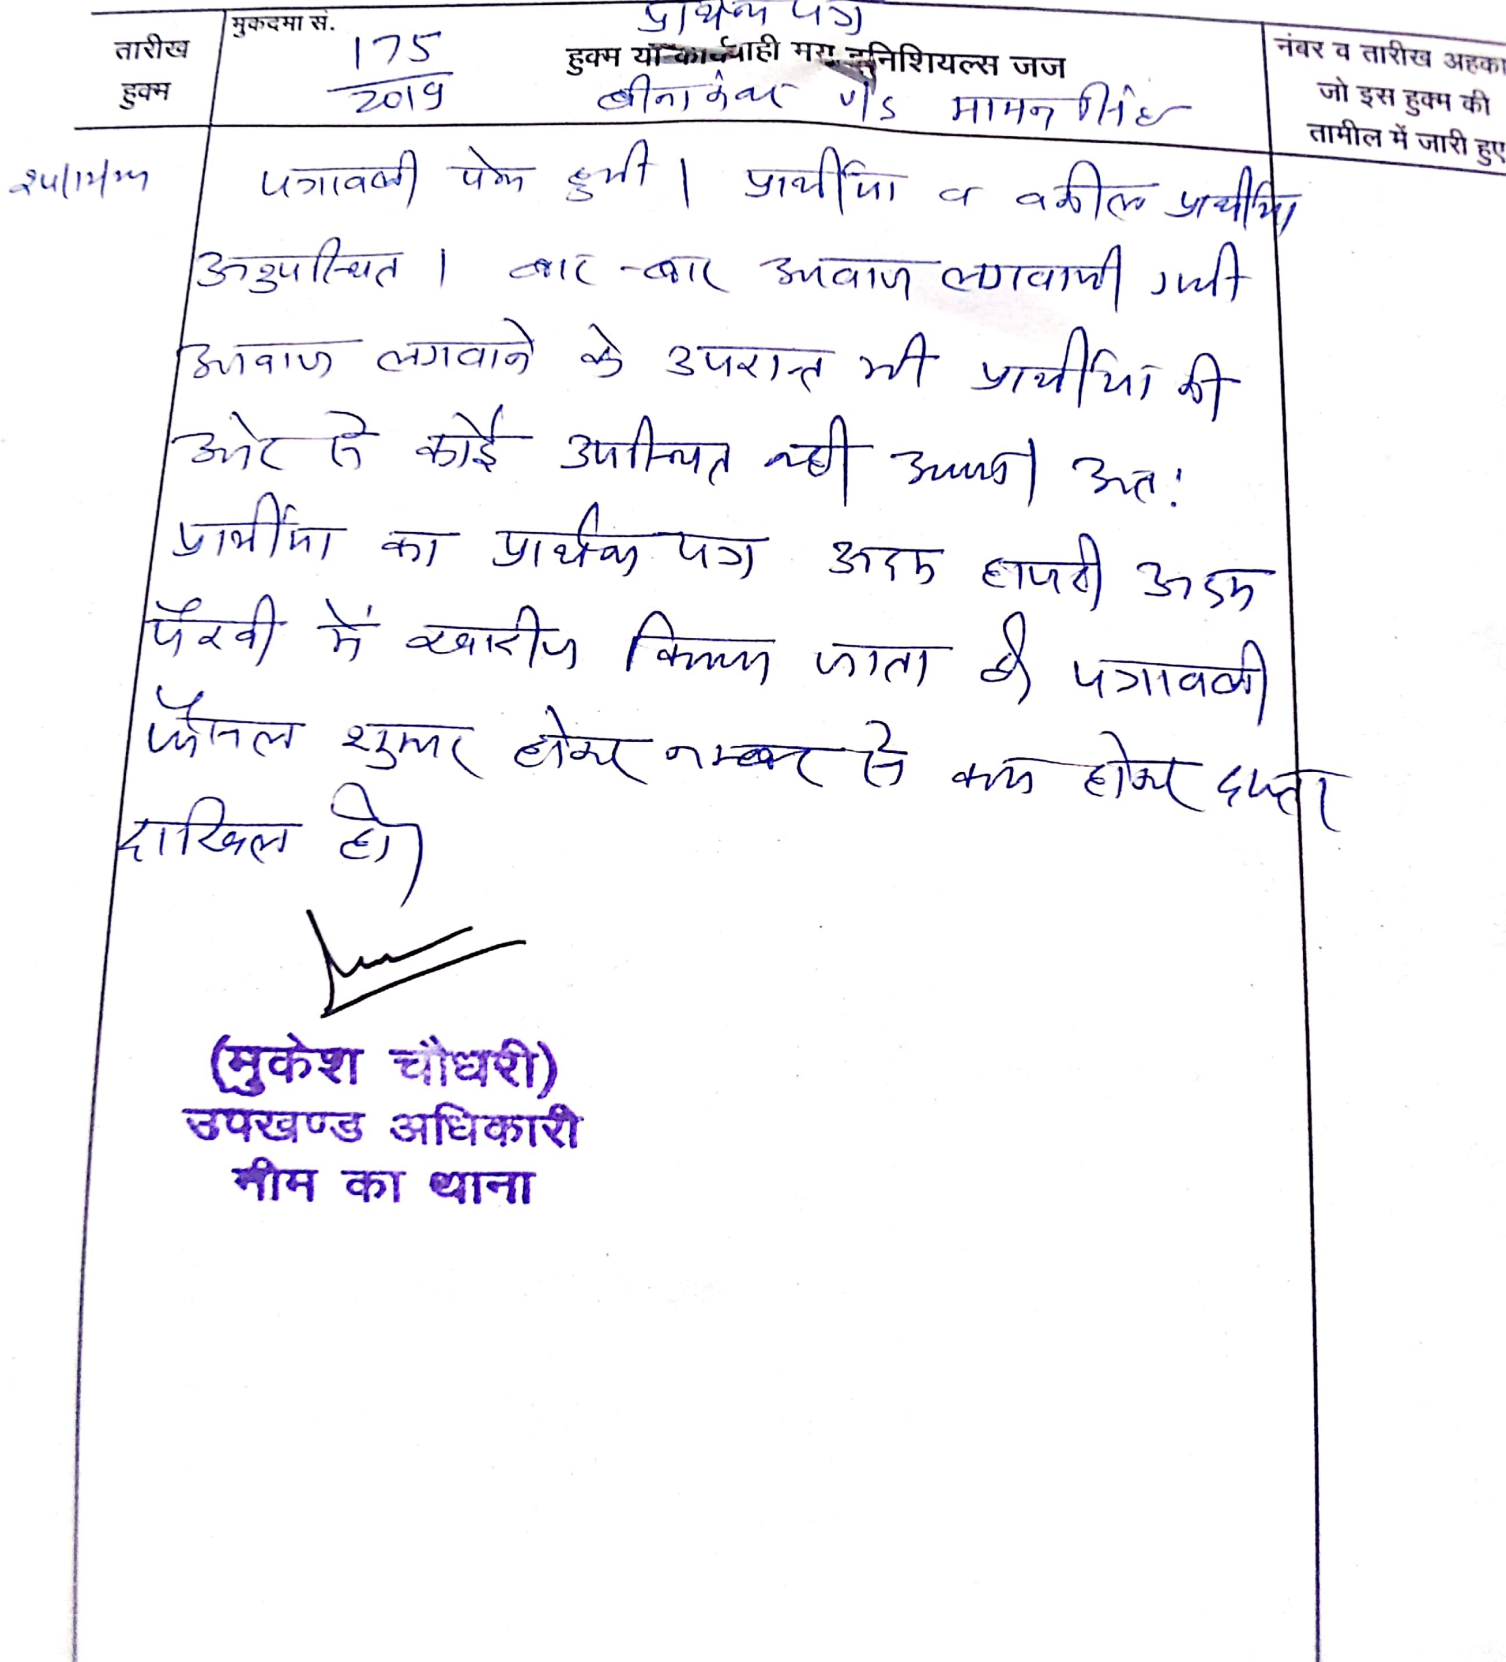 प्रार्थना पत्र
तारीख
हुक्म
मुकदमा सं.
175
2019
हुक्म या कार्यवाही मय इनिशियल्स जज
बीना कंवर मामन सिंह
नंबर व तारीख अहका
जो इस हुक्म की
तामील में जारी हुए
पत्रावली पेश हुयी। प्रार्थीया व वकील प्रार्थीया
अनुपस्थित। बार-बार आवाज लगवायी गयी
आवाज लगवाने के उपरान्त भी प्रार्थीया की
ओर से कोई उपस्थित नही आया। अत:
प्रार्थीया का प्रार्थना पत्र अदम हाजरी अदम
पैरवी में खारीज किया जाता है। पत्रावली
फैसल शुमार होकर नम्बर से कम होकर दफ्तर
दाखिल हो।
(मुकेश चौधरी)
उपखण्ड अधिकारी
नीम का थाना